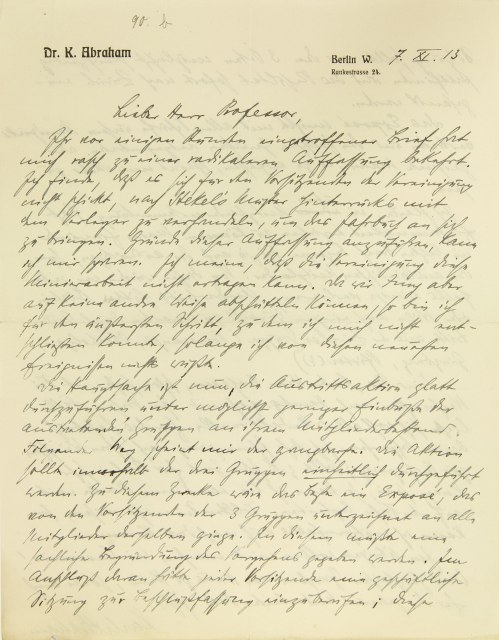 90. b
Dr. K. Abraham
Berlin W. 7. XI. 13
Rankestrasse 24.
Lieber Herr Professor,
Ihr vor einigen Stunden eingetroffener Brief hat
mich rasch zu einer radikaleren Auffassung bekehrt.
Ich finde, daß es sich für den Vorsitzenden der Vereinigung
nicht schickt, nach Stekels Muster hinterrücks mit
dem Verleger zu verhandeln, um das Jahrbuch an sich
zu bringen. Gründe dieser Auffassung anzuführen, kann
ich mir sparen. Ich meine, daß die Vereinigung diese
Minierarbeit nicht ertragen kann. Da wir Jung aber
auf keine andre Weise abschütteln können, so bin ich
für den äußersten Schritt, zu dem ich mich nicht ent-
schließen konnte, solange ich von diesen neuesten
Ereignissen nichts wußte.
Die Hauptsache ist nun, die Austrittsaktion glatt
durchzuführen unter möglichst geringer Einbuße der
austretenden Gruppen an ihrem Mitgliederbestand.
Folgender Weg scheint mir der gangbarste. Die Aktion
sollte innerhalb der drei Gruppen einheitlich durchgeführt
werden. Zu diesem Zwecke wäre das Beste ein Exposé, das
von den Vorsitzenden der 3 Gruppen unterzeichnet an alle
Mitglieder derselben ginge. In diesem müßte eine
sachliche Begründung des Vorgehens gegeben werden. Im
Anschluß daran hätte jeder Vorsitzende eine geschäftliche
Sitzung zur Beschlußfassung einzuberufen; diese